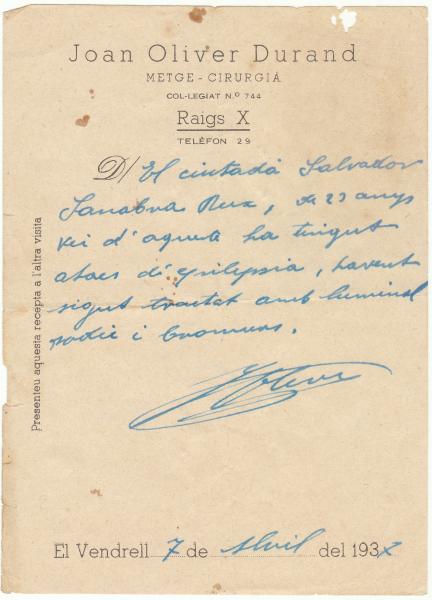 Joan Oliver Durand
METGE - CIRURGIÁ
COL·LEGIAT N.º 744
Raigs X
TELÈFON 29
D/ El ciutadà Salvador
Sanabra , de 23 anys
veí d'aquesta ha tingut
atacs d'epilepsia, havent
sigut tractat amb luminal
sodic i bromurs.
El Vendrell 7 de Abril del 1937
Presenteu aquesta recepta a l'altra visita